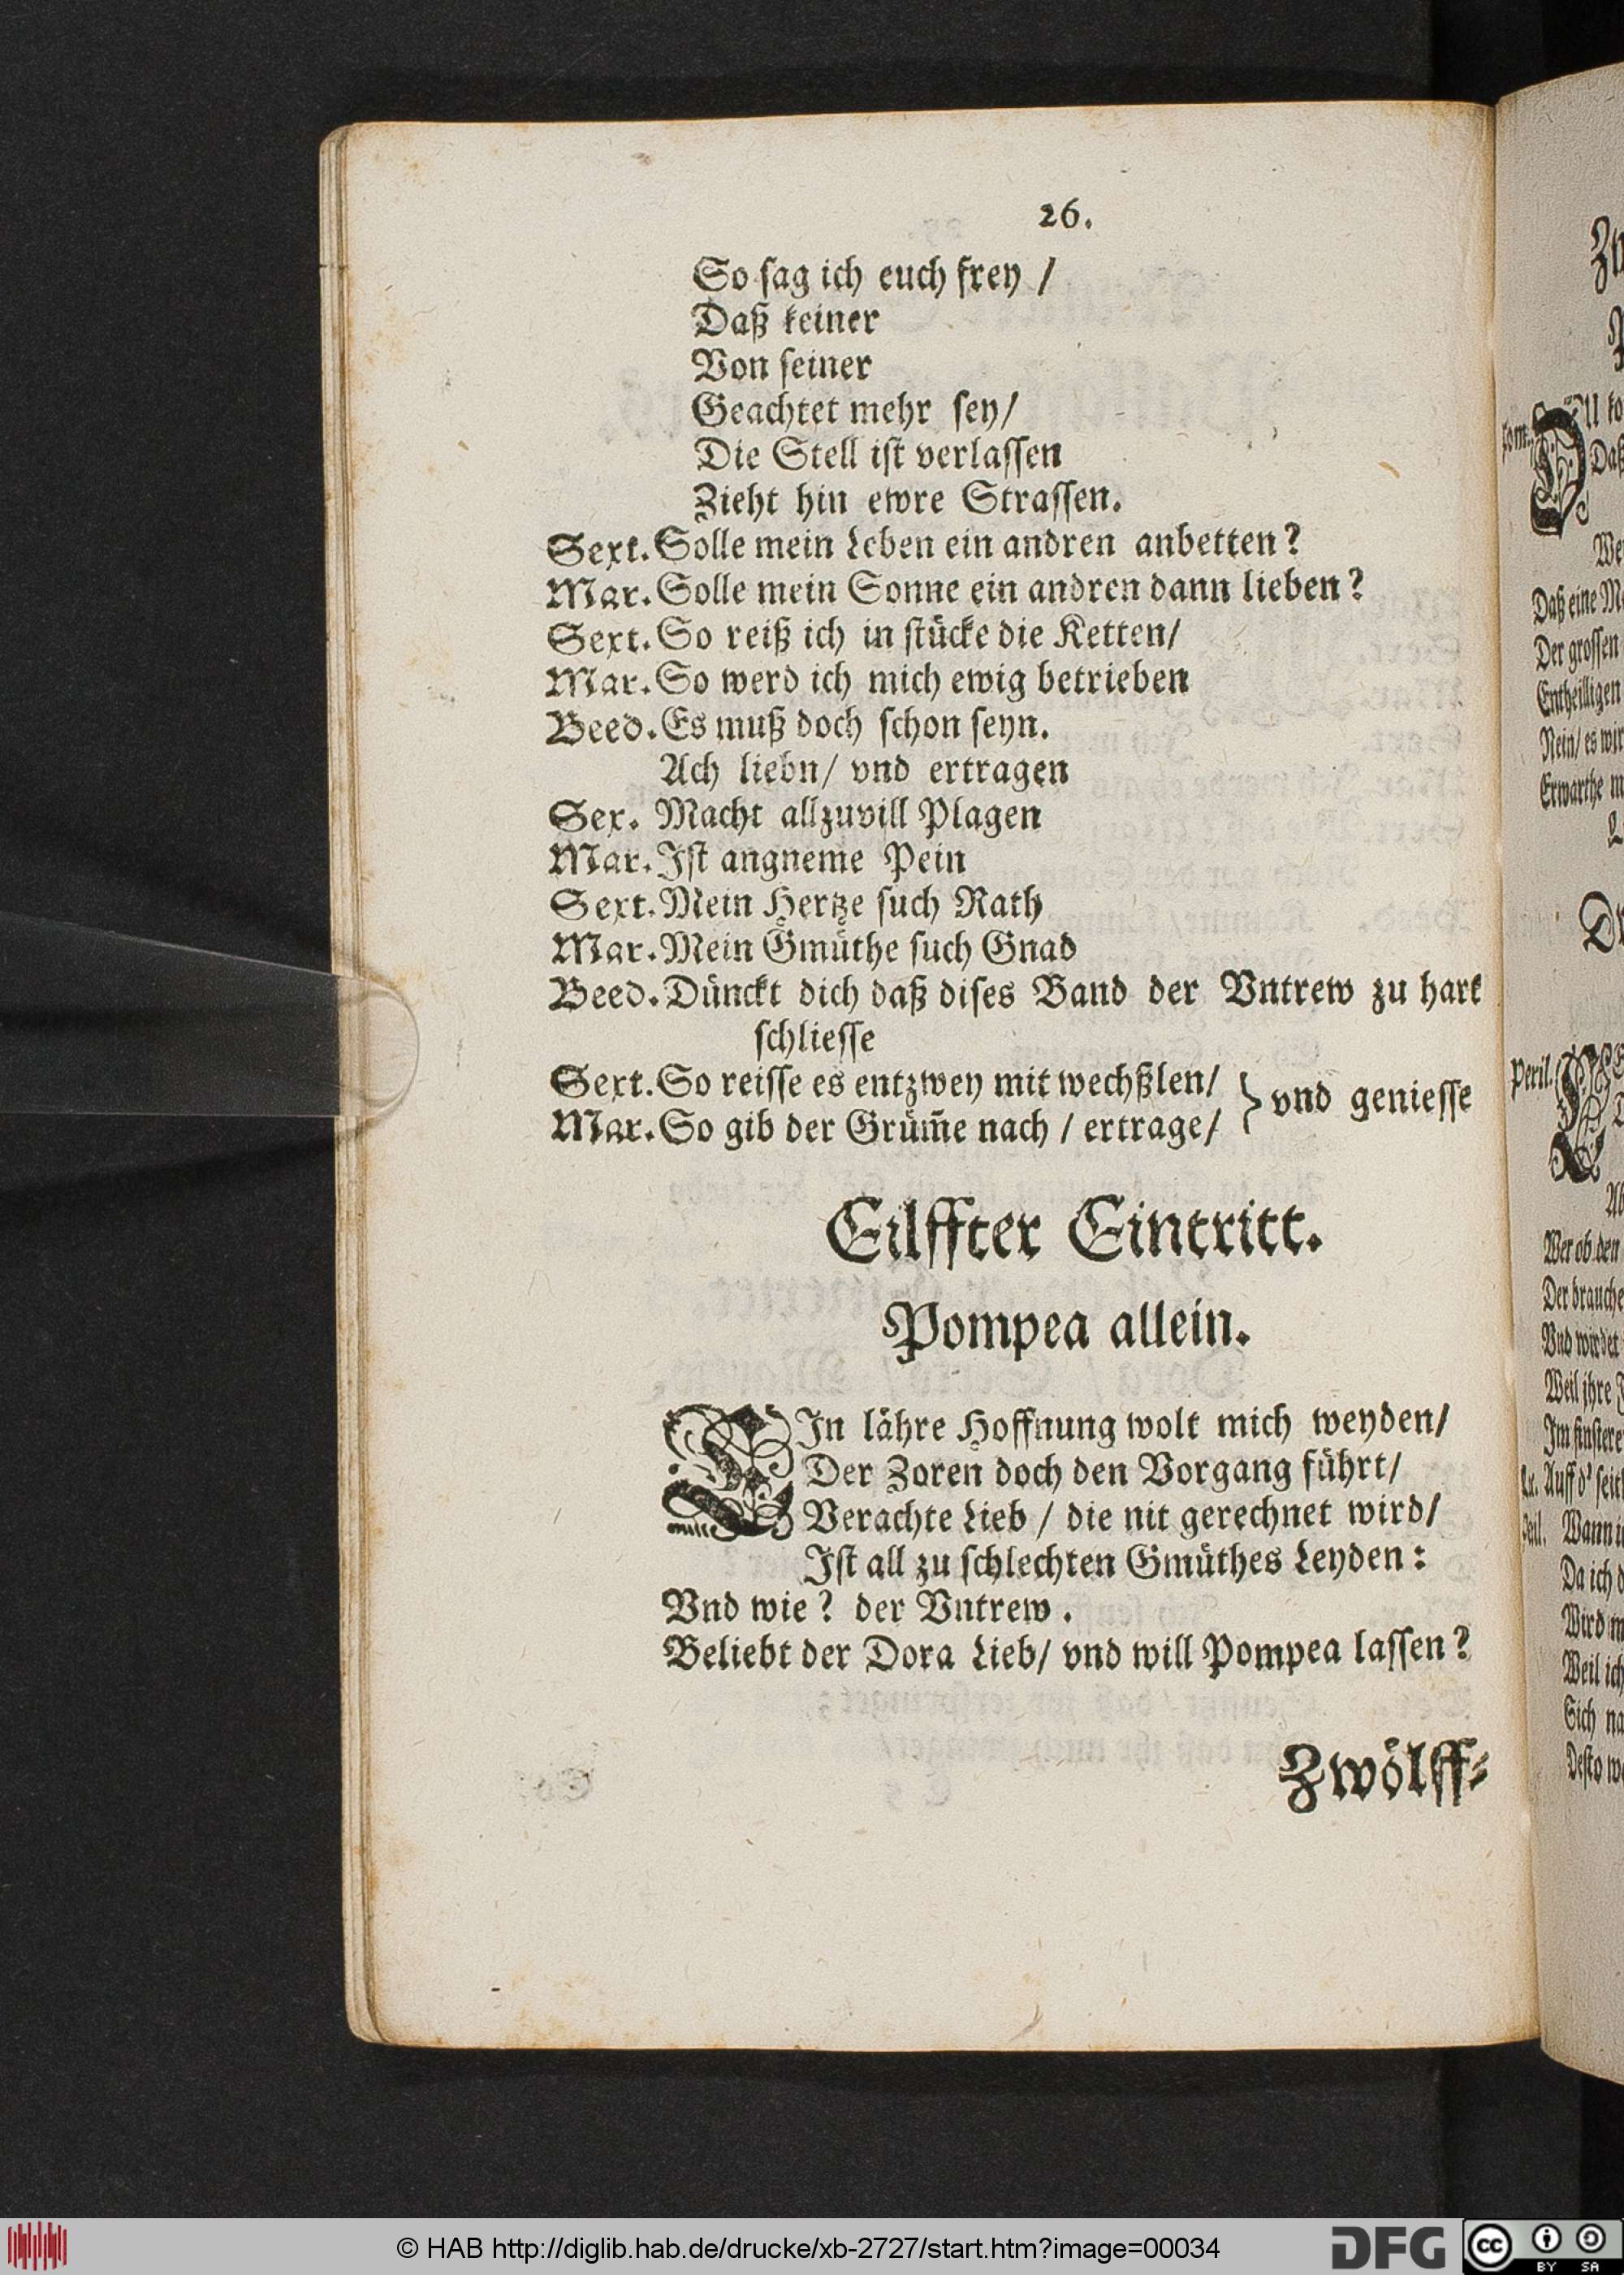 26.
So sag ich euch frey /
Daß keiner
Von seiner
Geachtet mehr sey/
Die Stell ist verlassen
Zieht hin ewre Strassen.
Sext. Solle mein Leben ein andren anbetten?
Mar. Solle mein Sonne ein andren dann lieben?
Sext. So reiß ich in stücke die Ketten/
Mar. So werd ich mich ewig betrieben
Beed. Es muß doch schon seyn.
Ach liebn/ vnd ertragen
Sex. Macht allzuvill Plagen
Mar. Ist angneme Pein
Sext. Mein Hertze such Rath
Mar. Mein Gmüthe such Gnad
Beed. Dünckt dich daß dises Band der Vntrew zu hart
schliesse
Sext. So reisse es entzwey mit wechßlen/ } vnd geniesse
Mar. So gib der Grüm̄e nach / ertrage/
Eilffter Eintritt.
Pompea allein.
EIn lähre Hoffnung wolt mich weyden/
Der Zoren doch den Vorgang führt/
Verachte Lieb / die nit gerechnet wird/
Ist all zu schlechten Gmüthes Leyden:
Vnd wie? der Vntrew.
Beliebt der Dora Lieb/ vnd will Pompea lassen?
Zwölff-
Daß eine
Der grossen
Entheilligen
Nein/ es wir
Erwarthe
Peril.
Wer ob den
Der brauche
Vnd wirdet
Weil jhre
Im finstere
Auff d' seit
Wann
Da ich
Wird
Weil ich
Sich
Desto
© HAB http://diglib.hab.de/drucke/xb-2727/start.htm?image=00034
DFG
cc
BY SA